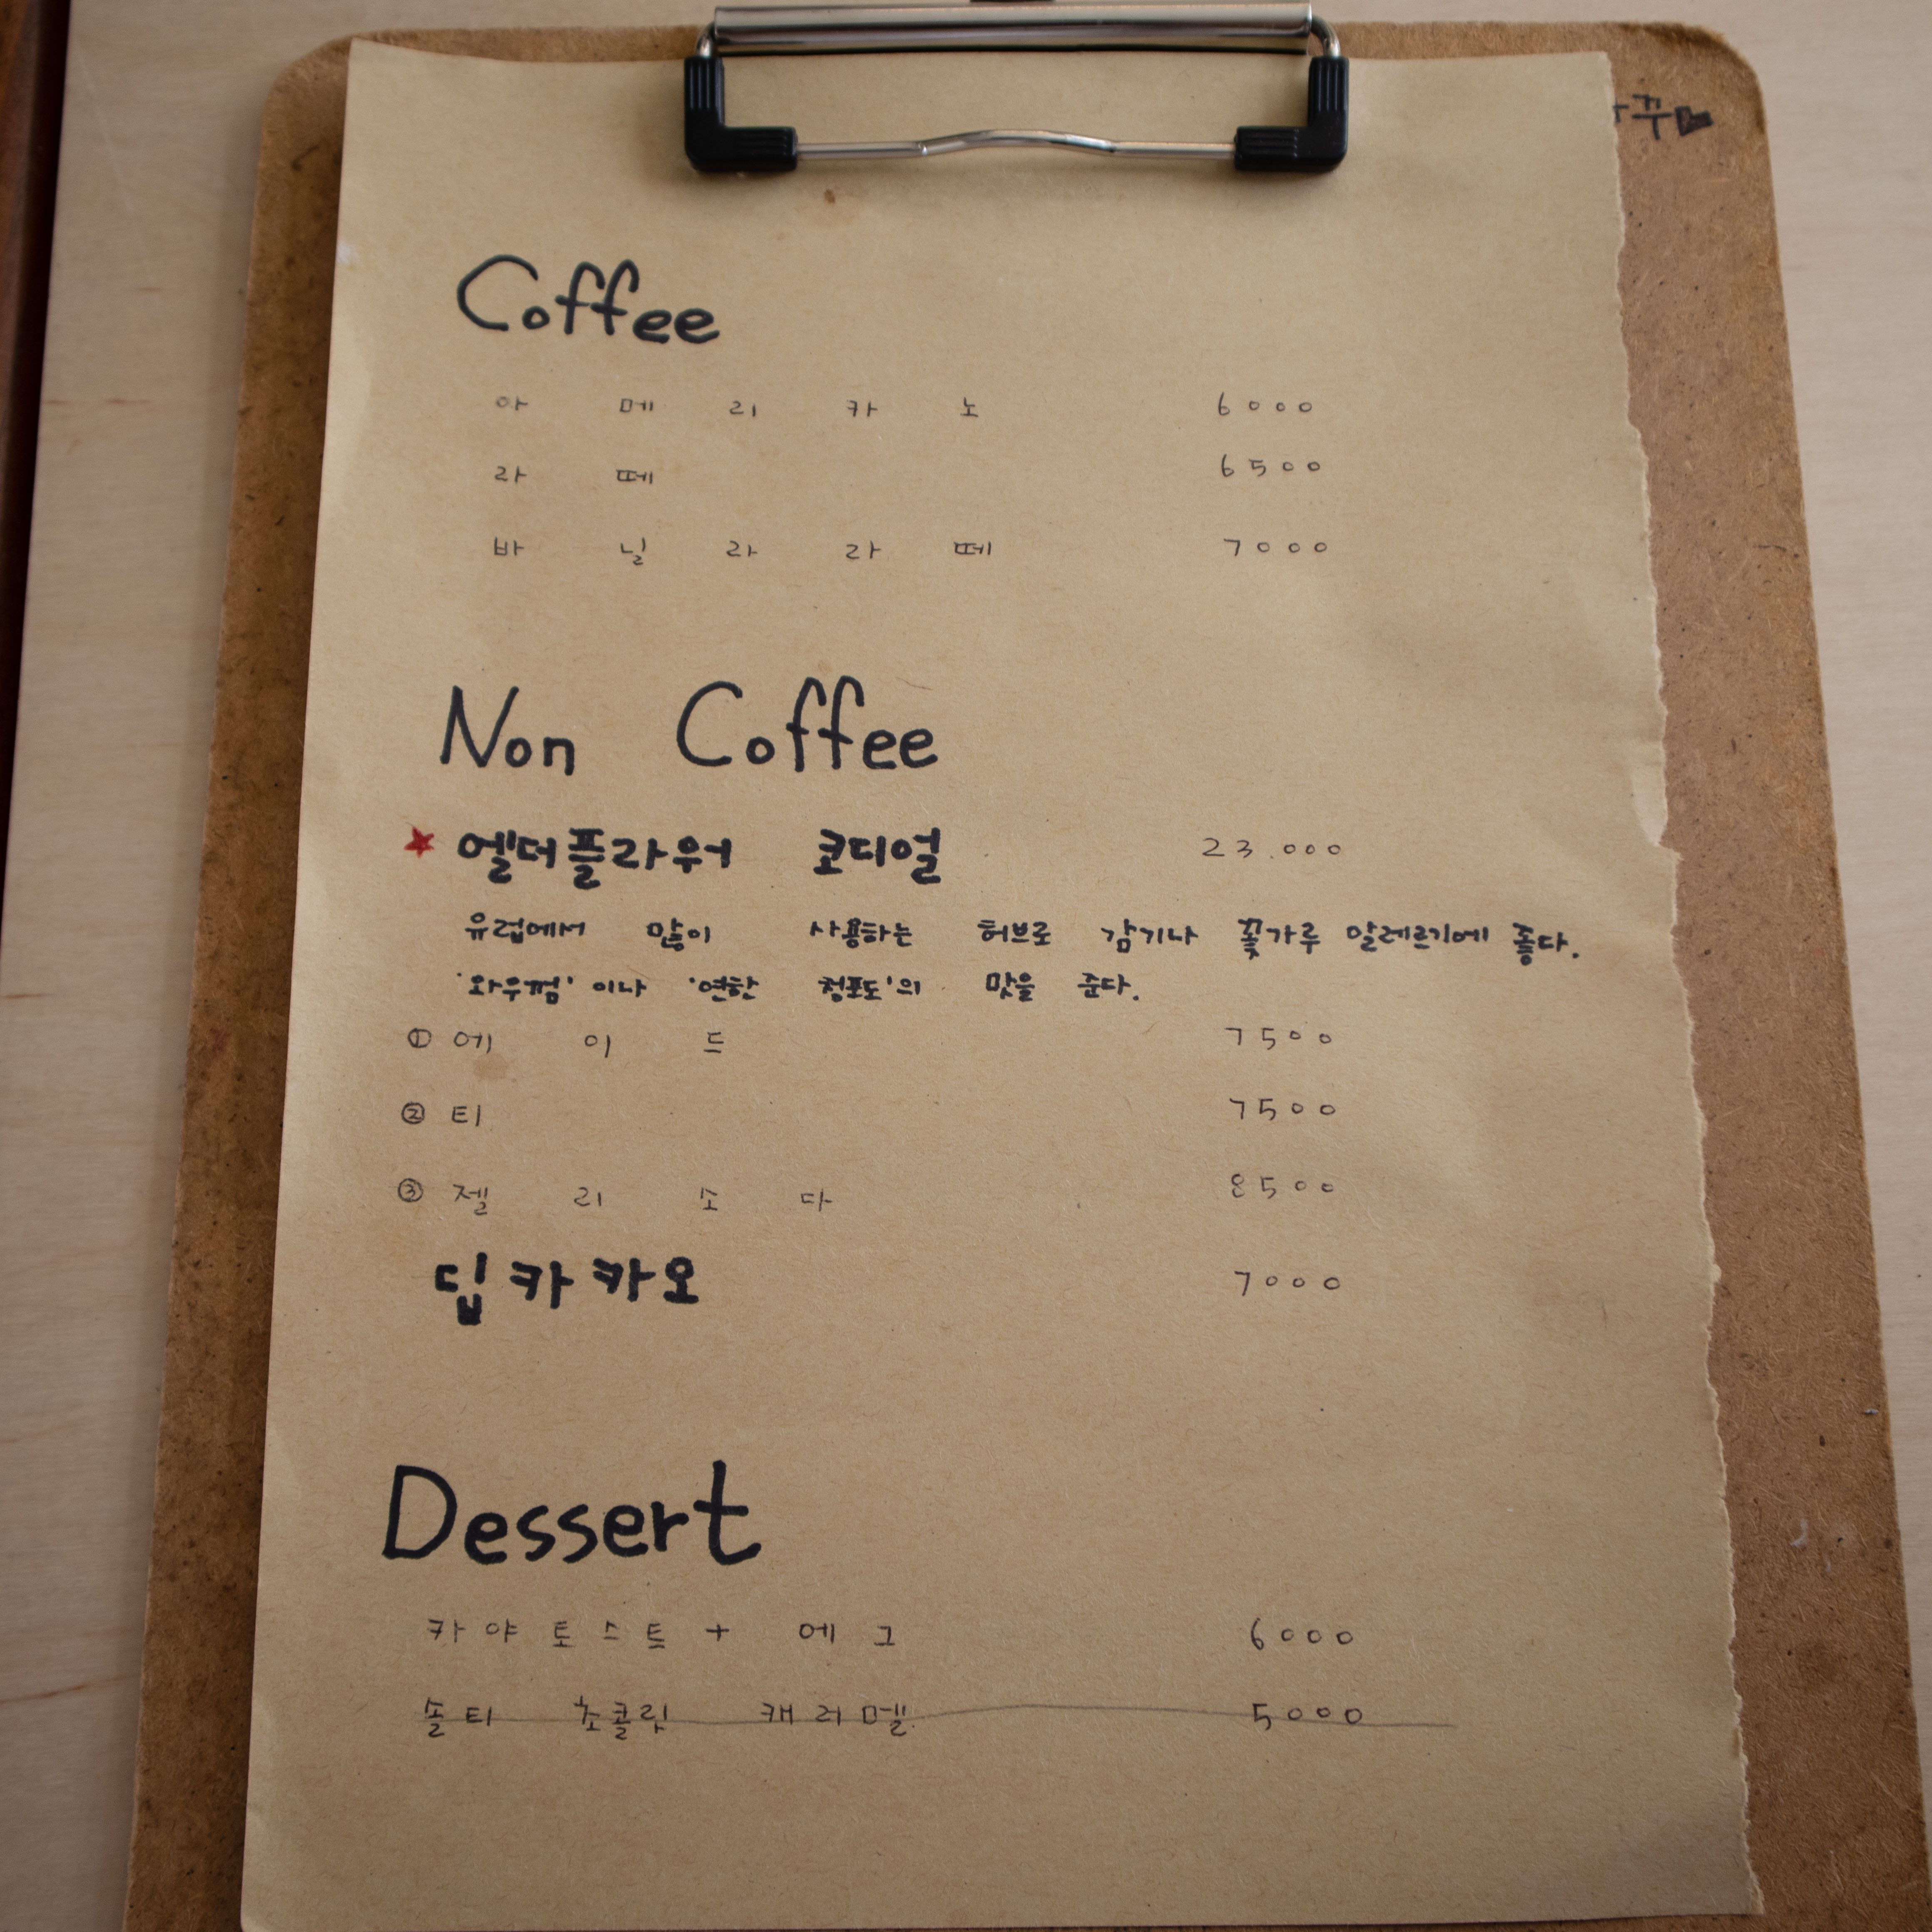 Coffee
아메리카노 6000
라떼 6500
바닐라라떼 7000
Non Coffee
엘더플라워 코디얼 23.000
유럽에서 많이 사용하는 허브로 감기나 꽃가루 알레르기에 좋다.
'와우껌' 이나 '연한 청포도'의 맛을 준다.
① 에이드 7500
② 티 7500
③ 젤리소다 8500
딥카카오 7000
Dessert
카야토스트 + 에그 6000
솔티 초콜릿 캐러멜 5000